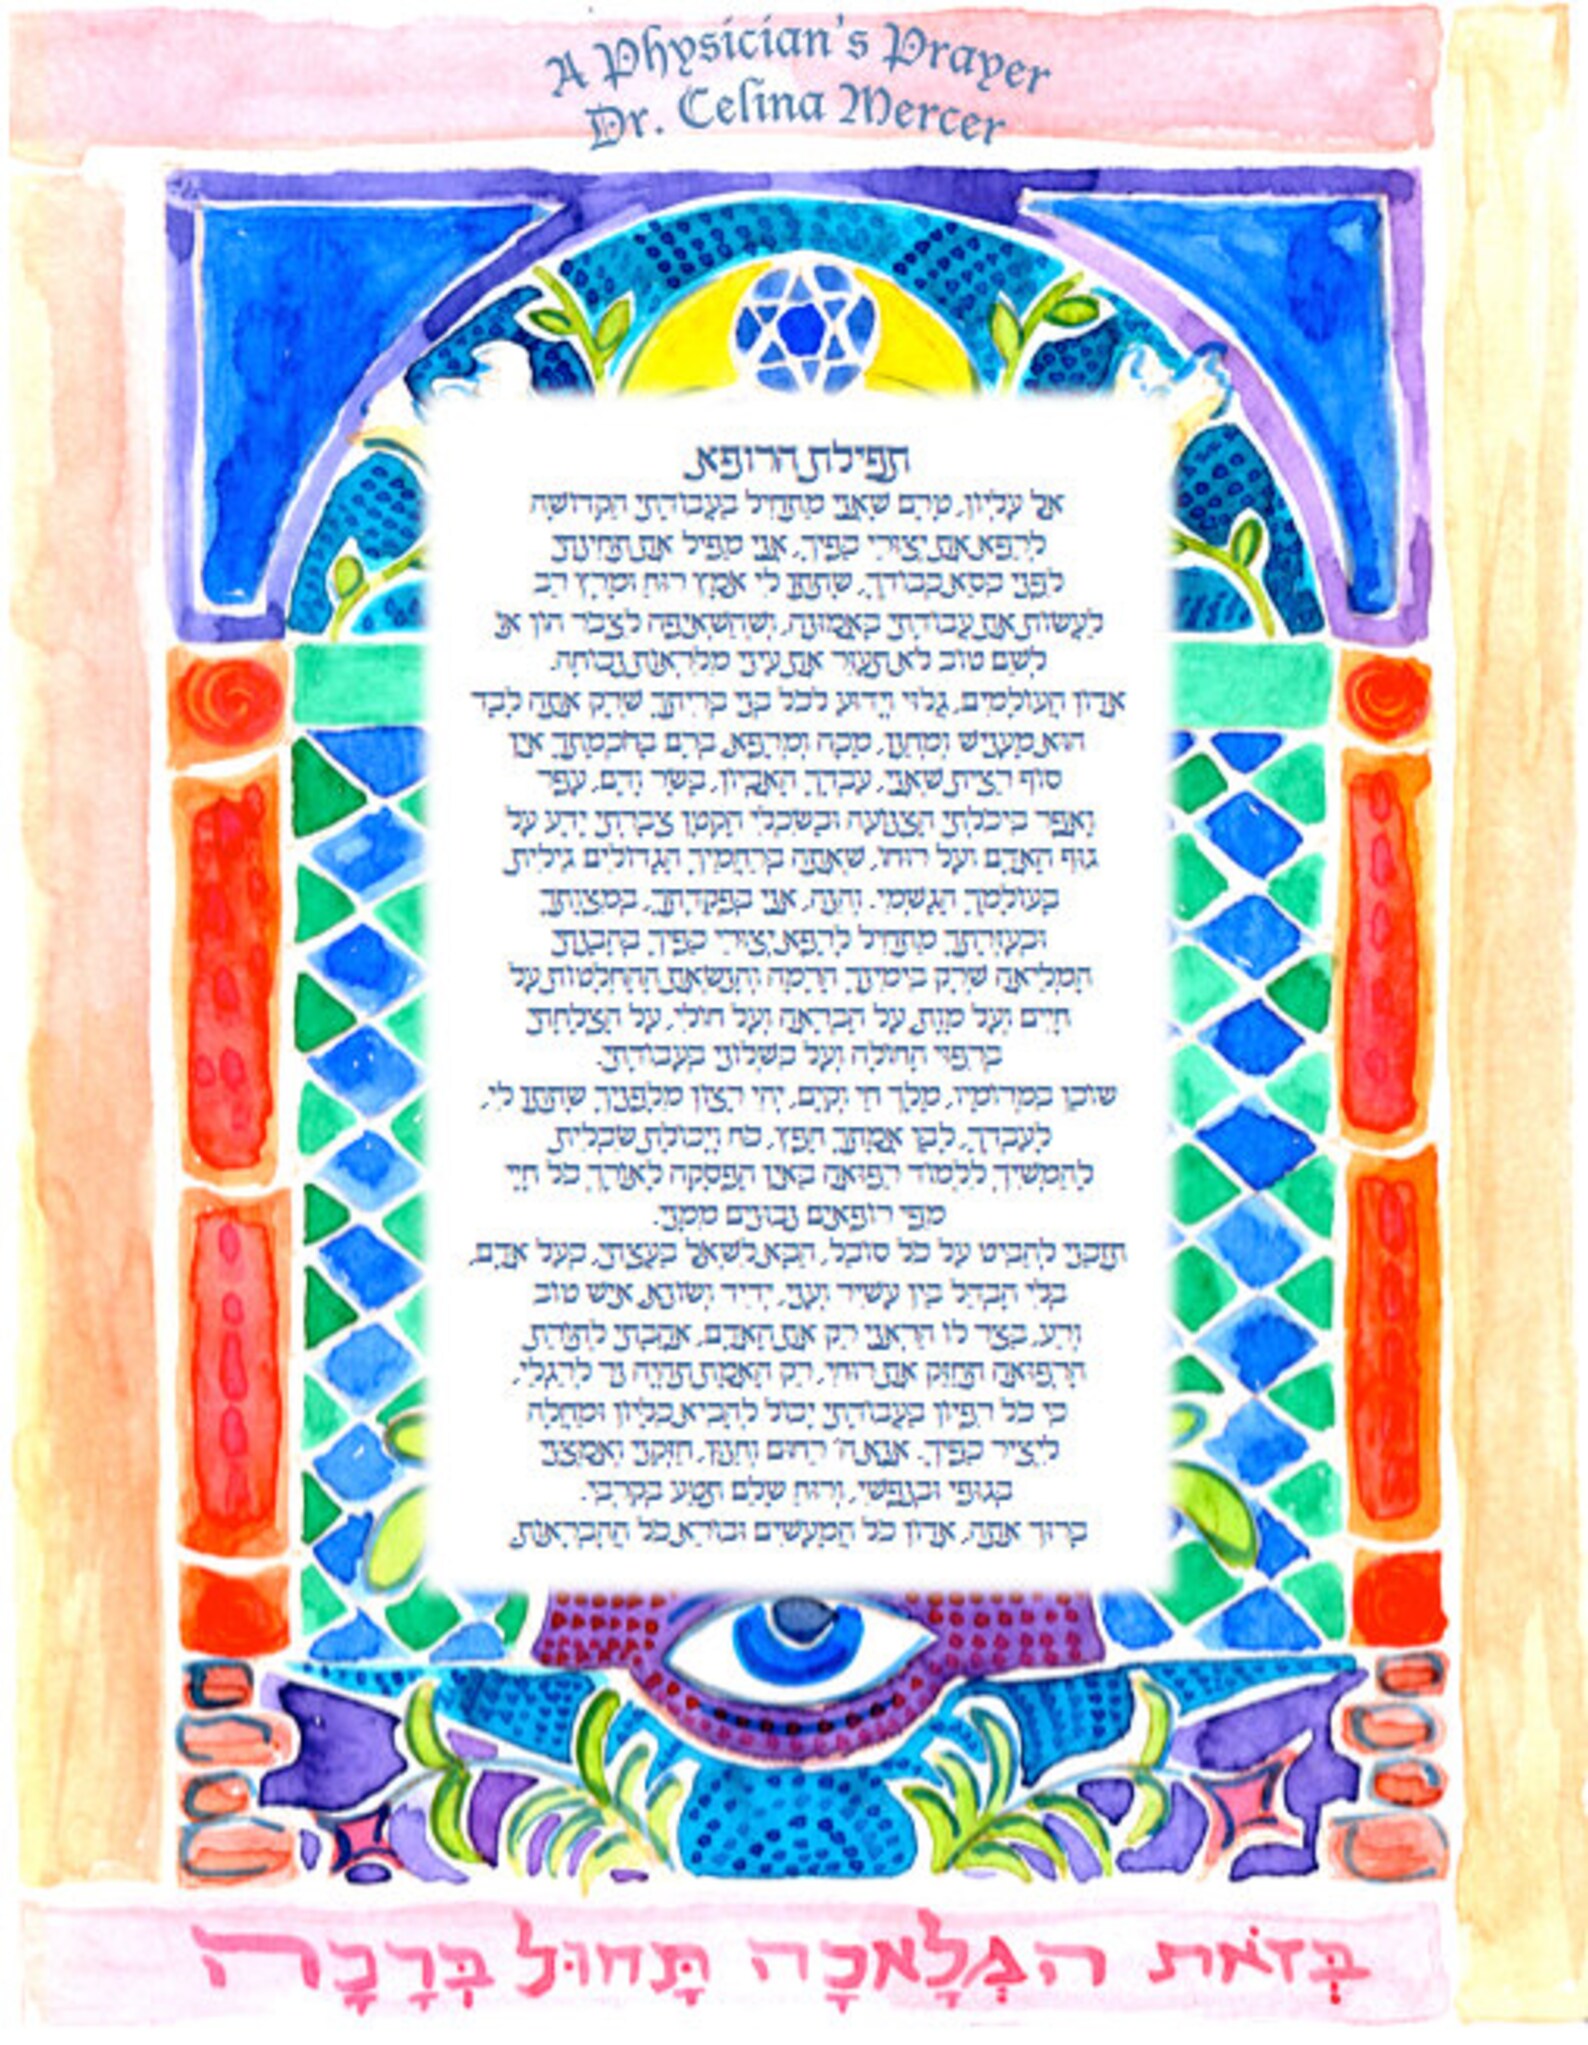 A Physician's Prayer
Dr. Celina Mercer
תפילת הרופא
אל עֶליון, טֶרֶם שֶׁאֲני מַתְחיל בַּעֲבודָתי הַקְדושָה
לְרַפֵּא אֶת יְצוּרֵי כַּפֶּיךָ, אֲני מַפּיל אֶת תְּחִינָתי
לִפְנֵי כִּסֵא כְּבודֶךָ, שֶׁתִּתֵּן לי אֹמֶץ רוּחַ וּמֶרֶץ רַב
לַעֲשׂות אֶת עֲבודָתי בֶּאֱמוּנָה, וְשֶׁהַשְּׁאיפָה לִצְבּור הון אוֹ
לְשֵׁם טוב לֹא תְעַוֵּר אֶת עֵינַי מִלִּרְאות נְכוחָה.
אֲדון הָעולָמים, גָּלוּי וְיָדוּעַ לְכָל בְּנֵי בְּריתֶךָ שֶׁרַק אַתָּה לְבַד
הוּא מַעֲנישׁ וּמְחונֵן, מַכֶּה וּמְרַפֵּא, בְּרַם בְּחָכְמָתְךָ אֵין
סוף רָציתָ שֶׁאֲני, עַבְדְּךָ הָאֶבְיון, בָּשָׂר וָדָם, עָפָר
וָאֵפֶר בִּיכָלְתּי הַצְּנוּעָה וּבְשִׂכְלי הַקָּטָן צָבַרְתּי יֶדַע עַל
גּוּף הָאָדָם וְעַל רוּחו, שֶׁאַתָּה בְּרַחֲמֶיךָ הַגְּדולים גִּילּיתָ
בְּעולָמְךָ הַגַּשְׁמי. וְהִנֵּה, אֲני בִּפְקֻדָּתְךָ, בְּמִצְוָתְךָ
וּבְעֶזְרָתְךָ מַתְחיל לְרַפֵּא יְצוּרֵי כַּפֶּיךָ בַּהֲבָנָתי
הַמְּלֵיאָה שֶׁרַק בִּימינְךָ הָרָמָה וְהַנִּשֵּׂאת הַהַחְלָטות עַל
חַיים וְעַל מָוֶת, עַל הַבְרָאָה וְעַל חולי, עַל הַצְלָחָתי
בְּרִפּוּי הַחולֶה וְעַל כִּשְׁלוני בַּעֲבודָתי.
שׁוכֵן בִּמְרומָיו, מֶלֶךְ חַי וְקַיָּם, יְהי רָצון מִלְּפָנֶיךָ שֶׁתִּתֵּן לי,
לְעַבְדְּךָ, לְבֶן אֲמָתְךָ חֵפֶץ, כֹּחַ וִיכולֶת שִׂכְלית
לְהַמְשׁיךְ לִלְמוד רְפוּאָה בְּאֵין הַפְסָקָה לְאורֶךְ כָּל חַיַּי
מִפּי רופְאים נְבונים מִמֶּני.
תְּזַכֵּני לְהַבּיט עַל כָּל סובֵל, הַבָּא לִשְׁאֹל בַּעֲצָתי, כְּעַל אָדָם,
בְּלי הֶבְדֵּל בֵּין עָשׁיר וְעָני, יָדיד וְשׂונֵא, אישׁ טוב
וְרַע, בַּצַּר לו הַרְאֵני רַק אֶת הָאָדָם, אַהֲבָתי לְתורַת
הָרְפוּאָה תְּחַזֵּק אֶת רוּחי, רַק הָאֱמֶת תִּהְיֶה נֵר לְרַגְלי,
כּי כָּל רִפְיון בַּעֲבודָתי יָכול לְהָביא כִּלָּיון וּמַחֲלָה
לִיצִיר כַּפֶּיךָ. אָנָּא ה' רַחוּם וְחַנּוּן, חַזְּקֵני וְאַמְּצֵני
בְּגוּפי וּבְנַפְשׁי, וְרוּחַ שָׁלֵם תִּטַּע בְּקִרְבּי.
בָּרוּךְ אַתָּה, אֲדון כָּל הַמַּעֲשׂים וּבורֵא כָּל הַהַבְרָאות.
בְּזֹאת הַמְּלָאכָה תָּחוּל בְּרָכָה